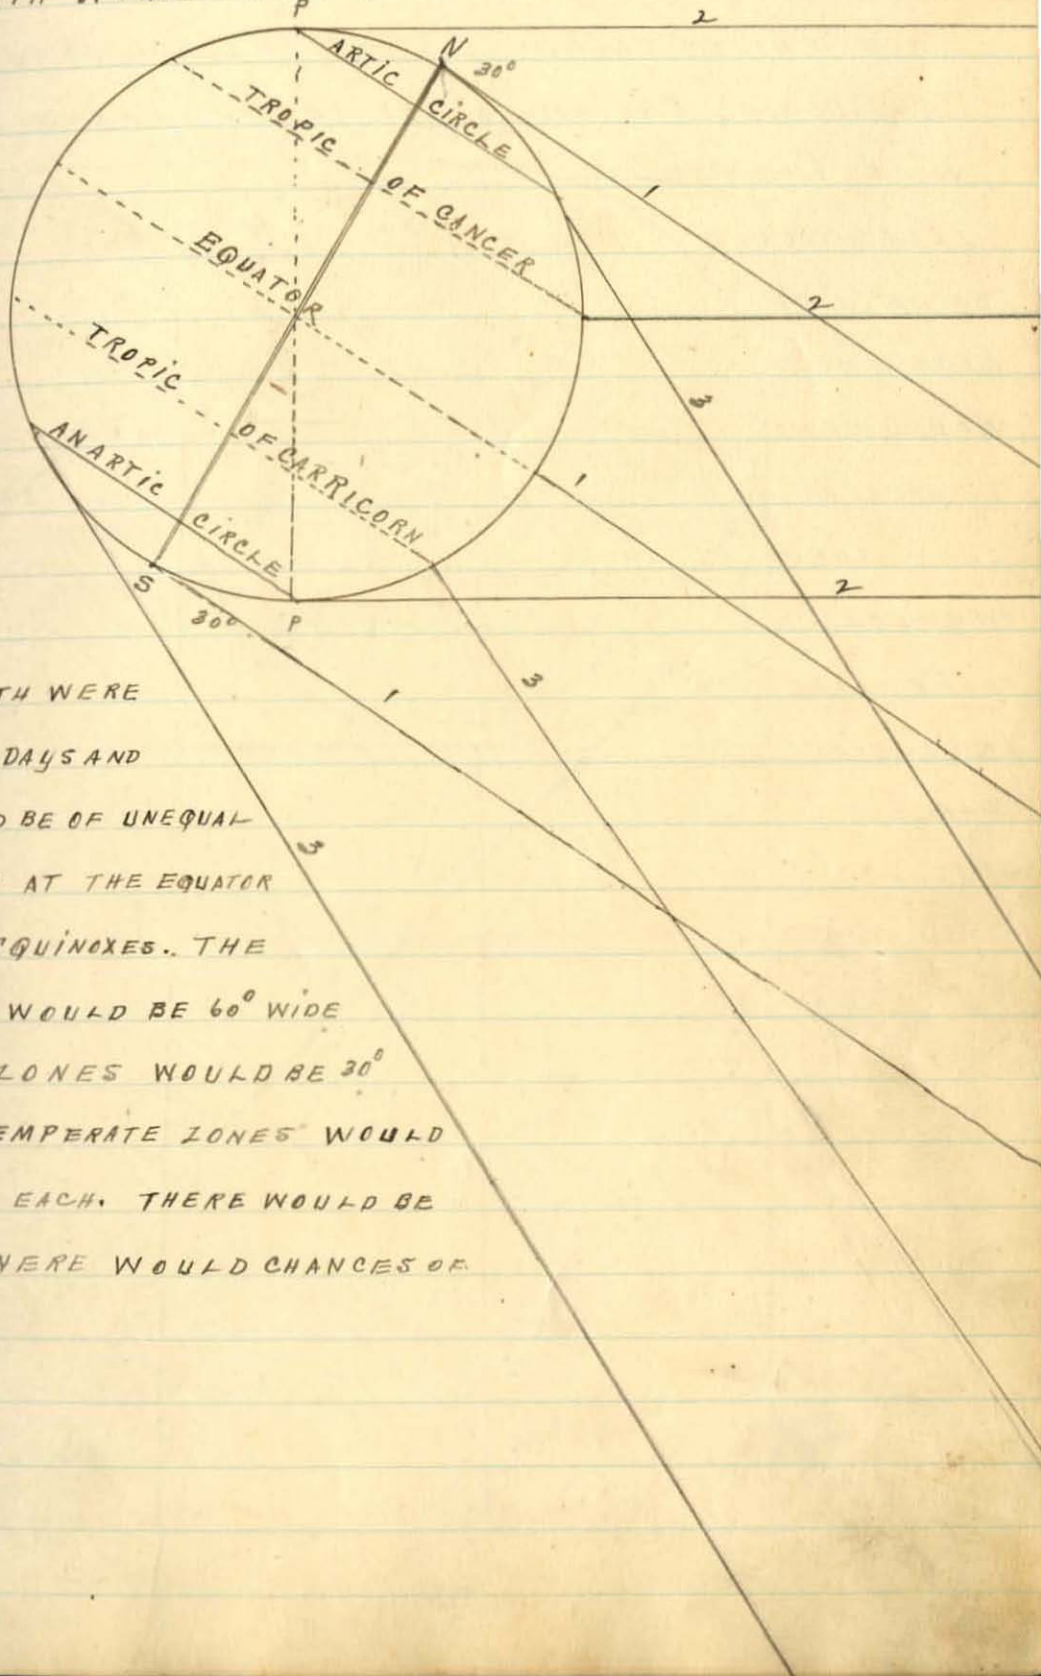 TH
P
2
N
30°
ARTIC CIRCLE
TROPIC OF CANCER
1
EQUATOR
2
TROPIC OF CARRICORN
3
ANARTIC CIRCLE
1
S
30°
P
2
TH WERE
1
3
DAYS AND
BE OF UNEQUAL
3
AT THE EQUATOR
QUINOXES. THE
WOULD BE 60° WIDE
ZONES WOULD BE 30°
EMPERATE ZONES WOULD
EACH. THERE WOULD BE
HERE WOULD CHANCES OF